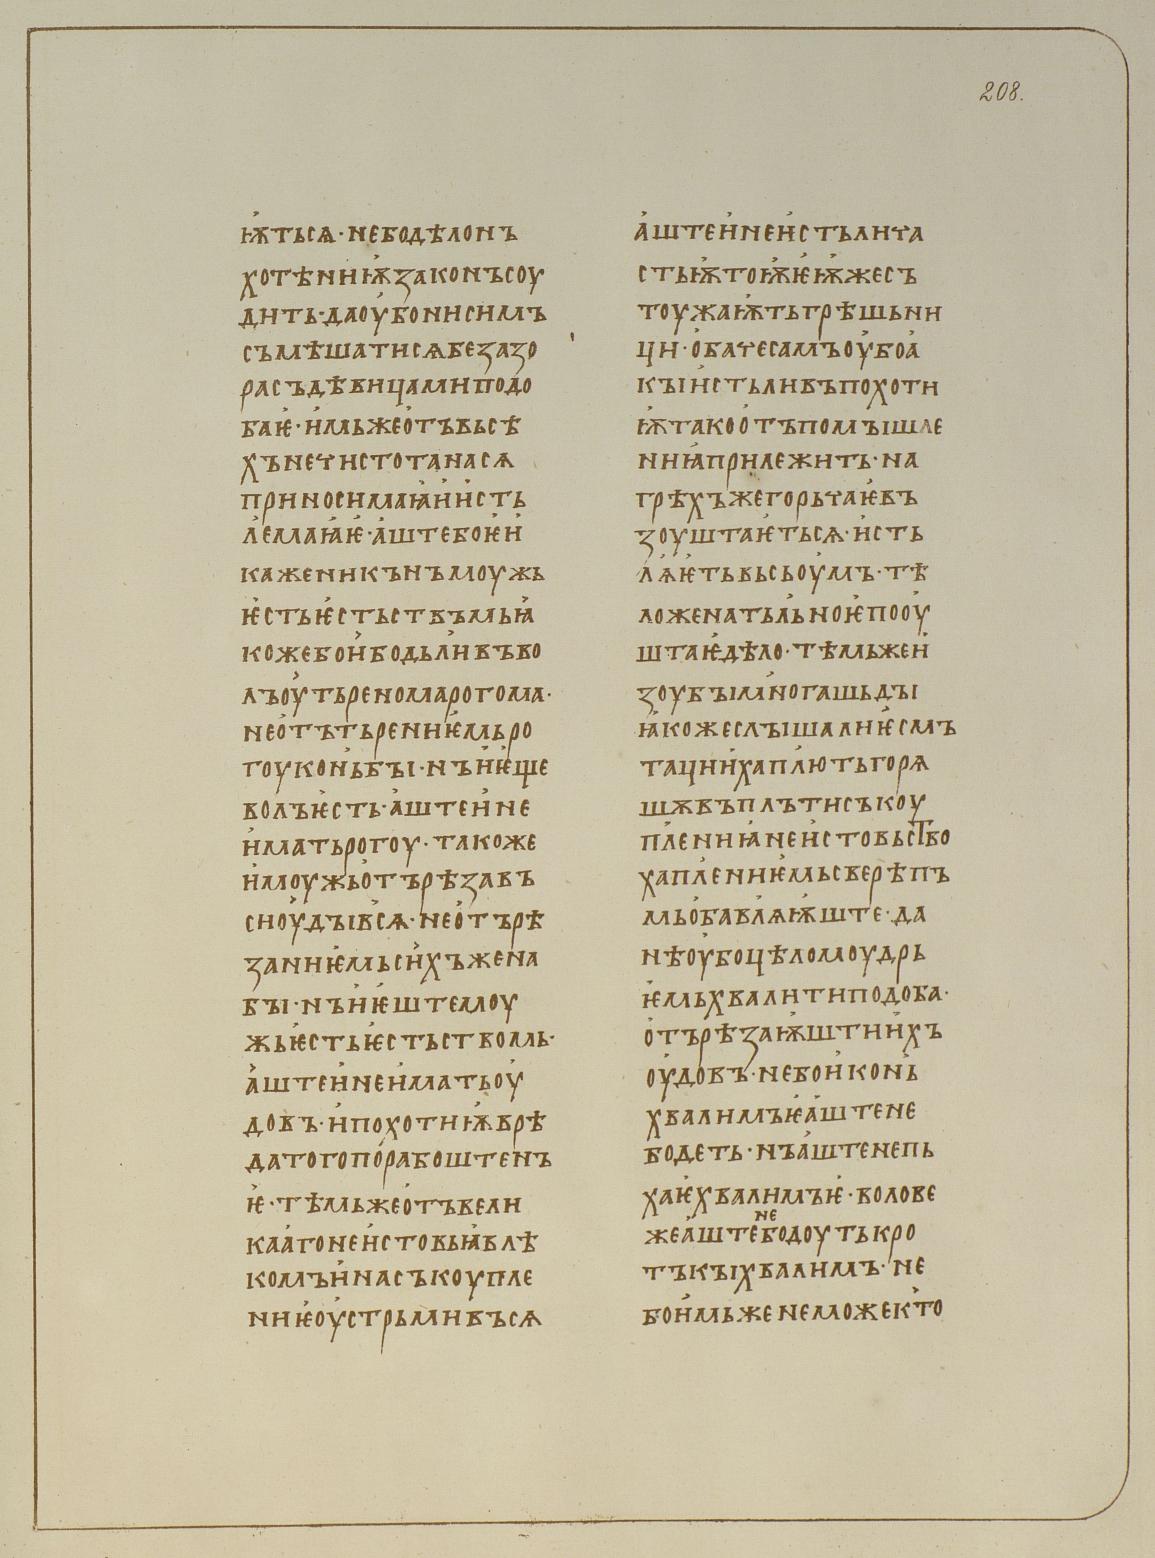 208.
ѭтьсѧ·небодѣлонъ
хотѣниѭзаконъсоу
дить·даоубонисимъ
съмѣшатисѧбезазо
расъдѣвицамиподо
баѥ·имьжеотъвьсѣ
хънечистотанасѧ
приносимаꙗиисть
лемаꙗѥ·аштебоѥи
каженикънъмоужь
ѥстьѥстьствъмьꙗ
кожебоибодьливъво
лъоутьреномарогома·
неотътьрениѥмьро
гоуконьбъі·нъиѥще
волъѥсть·аштеине
иматьрогоу·такоже
имоужьотърѣзавъ
сноудъівсѧ·неотърѣ
заниѥмьсихъжена
бъі·нъиѥштемоу
жьѥстьѥстьствомь·
аштеинеиматьоу
довъ·ипохотиѭврѣ
датогопорабоштенъ
ѥ·тѣмьжеотъвели
каагонеистовьꙗвлѣ
комъиинасъкоупле
ниѥоустрьмивъсѧ
аштеинеистьлита
стьѭтоѭѥѭжесъ
тоужаѭтьгрѣшьни
ци·обачесамъоубоа
къіистьливъпохоти
ѭтакоотъпомъішле
ниꙗприлежить·на
грѣхъжегорьчаѥвъ
зоуштаѥтьсѧ·исть
лꙗѥтьвьсьоумъ·тѣ
ложенатьльноѥпооу
штаѥдѣло·тѣмьжеи
зоубъімногашьдъі
ꙗкожеслъішалиѥсмъ
тациихаплютьгорѧ
шѫвъплътисъкоу
плениꙗнеистовьство
хаплениѥмьсверѣпъ
мьобавлꙗѭште·да
нѣоубоцѣломоудрь
ѥмьхвалитиподоба·
отърѣзаѭштиихъ
оудовъ·небоиконь
хвалимъѥаштене
бодеть·нъаштенепь
хаѥхвалимъѥ·волове
жеаштенебодоутькро
тъкъіхвалимъ·не
боимьженеможекъто